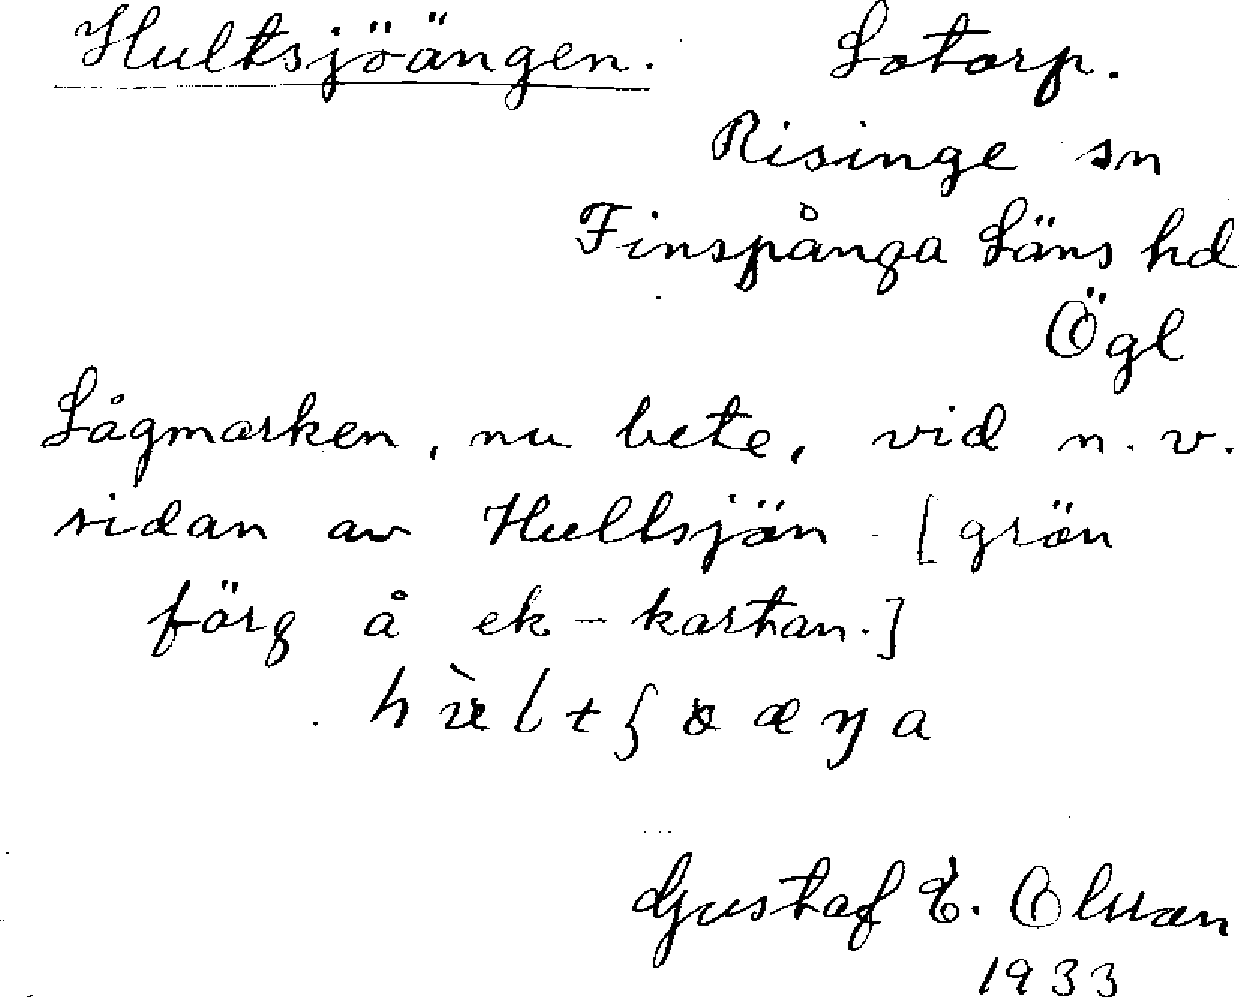 Hultsjöängen. Lotorp.
Risinge sn
Finspånga Läns hd
Ögl
Lågmarken, nu bete, vid n.v.
sidan av Hultsjön [grön
färg å ek-kartan.]
Gustaf E.
1933